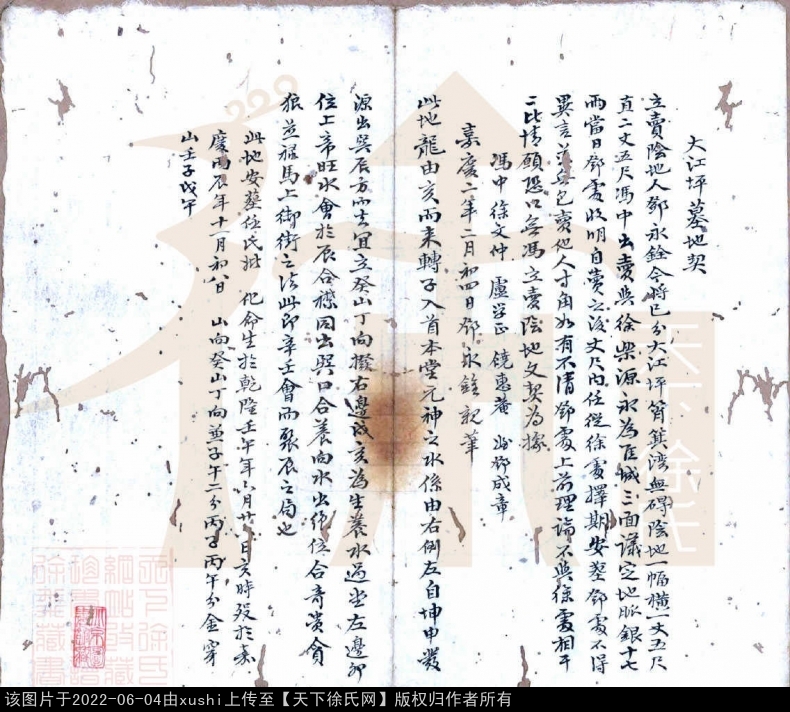 大江坪墓地契
立賣陰地人鄧永銓今將己分大江坪筲箕湾無碍陰地一幅橫一丈五尺
直二丈五尺馮中出賣與徐榮源永為 三面議定地脉銀十七
兩當日鄧處收明自賣之後丈尺內任從徐處擇期安塟鄧處不得
異言 包賣他人寸角如有不清鄧處上前理論不與徐處相干
二比情願恐口無馮立賣陰地文契為據
馮中徐文仲 盧 鏡惠菴 鄧成章
嘉慶二年二月初四日鄧永銓親筆
此地龍由亥而來轉子入首本堂元神之水係由右倒左自坤申發
源出巽辰方而去宜立癸山丁向撥右邊 亥為生養水過堂左邊卯
位上帝旺水會於辰合襟因出巽口合養向水出 位合奇貴貪
狼並祿馬上御街之法此即辛壬會而聚辰之局也
此地安塟任氏 化命生於乾隆壬午年六月廿 日亥時歿於嘉
慶丙辰年十一月初八日 山向癸山丁向兼子午二分丙子丙午分金穿
山壬子戊午
天下徐氏
该图片于2022-06-04由xushi上传至【天下徐氏网】版权归作者所有